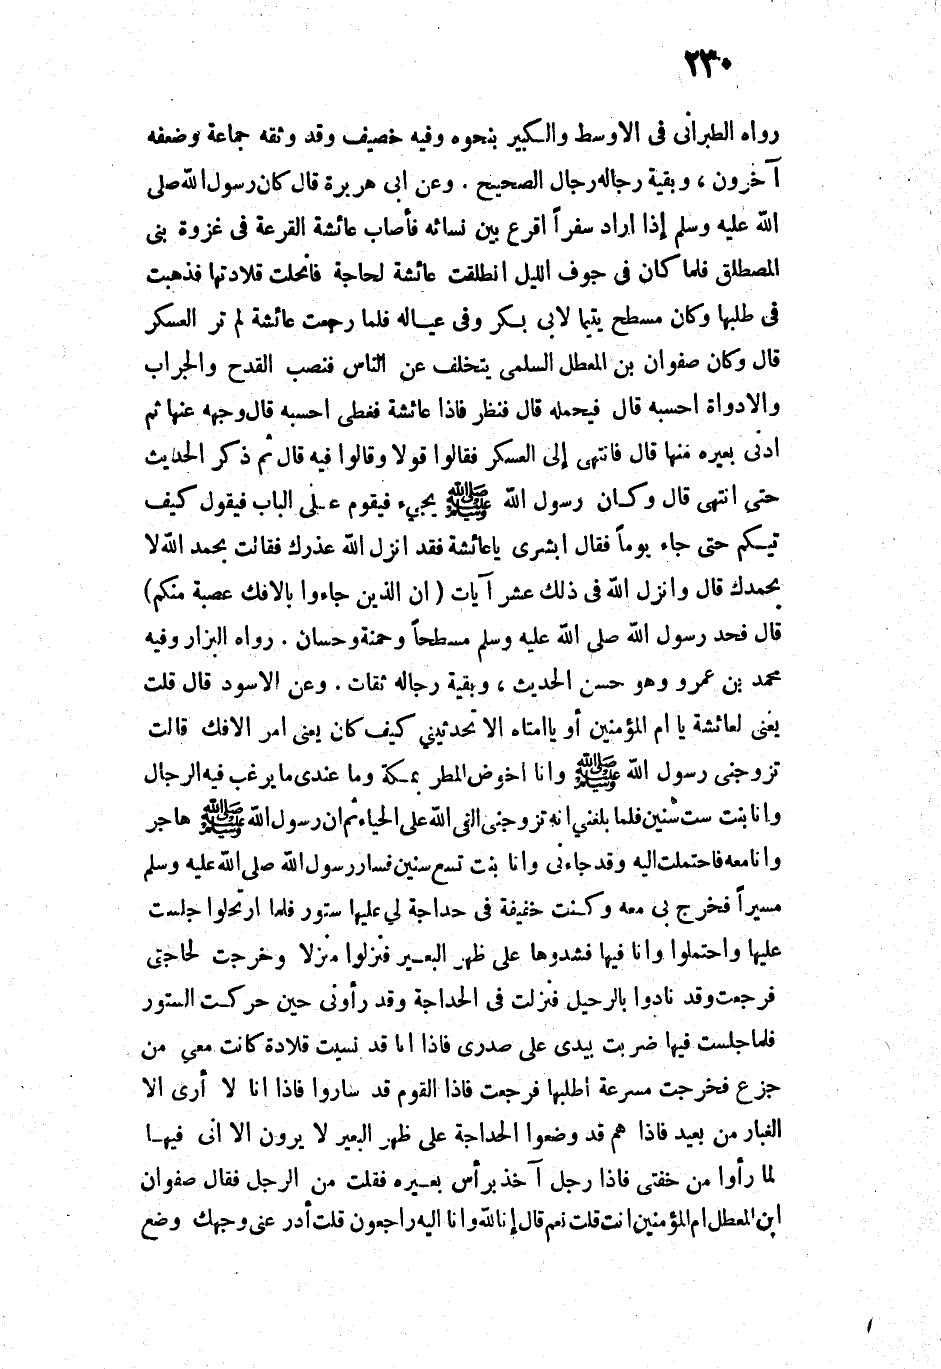 ٢٣٠
رواه الطبرانى فى الاوسط والكبير بنحوه وفيه خصيف وقد وثقه جماعة وضعفه
آخرون ، وبقية رجاله رجال الصحيح . وعن ابى هريرة قال كان رسول الله صلى
الله عليه وسلم إذا اراد سفراً اقرع بين نسائه فأصاب عائشة القرعة فى غزوة بنى
المصطلق فلما كان فى جوف الليل انطلقت عائشة لحاجة فانحلت قلادتها فذهبت
فى طلبها وكان مسطح يتيما لابى بكر وفى عياله فلما رجعت عائشة لم تر العسكر
قال وكان صفوان بن المعطل السلمى يتخلف عن الناس فنصب القدح والجراب
والادواة احسبه قال فيحمله قال فنظر فاذا عائشة فغطى احسبه قال وجهه عنها ثم
ادنى بعيره منها قال فانتهى إلى العسكر فقالوا قولا وقالوا فيه قال ثم ذكر الحديث
حتى انتهى قال وكان رسول الله ﷺ يجيء فيقوم على الباب فيقول كيف
تيكم حتى جاء يوماً فقال ابشرى ياعائشة فقد انزل الله عذرك فقالت بحمد الله لا
بحمدك قال وانزل الله فى ذلك عشر آيات ( ان الذين جاءوا بالافك عصبة منكم)
قال فحد رسول الله صلى الله عليه وسلم مسطحاً وحمنة وحسان . رواه البزار وفيه
محمد بن عمرو وهو حسن الحديث ، وبقية رجاله ثقات . وعن الاسود قال قلت
يعنى لعائشة يا ام المؤمنين أو ياامتاه الا تحدثيني كيف كان يعنى امر الافك قالت
تزوجنى رسول الله ﷺ وانا اخوض المطر بمكة وما عندى ما يرغب فيه الرجال
وانا بنت ست سنين فلما بلغني انه تزوجنى القى الله على الحياء ثم ان رسول الله ﷺ هاجر
وانا معه فاحتملت اليه وقد جاءنى وانا بنت تسع سنين فسار رسول الله صلى الله عليه وسلم
مسيراً فخرج بى معه وكنت خفيفة فى حداجة لي عليها ستور فلما ارتحلوا جلست
عليها واحتملوا وانا فيها فشدوها على ظهر البعير فنزلوا منزلا وخرجت لحاجتى
فرجعت وقد نادوا بالرحيل فنزلت فى الحداجة وقد رأونى حين حركت الستور
فلما جلست فيها ضربت بيدى على صدرى فاذا انا قد نسيت قلادة كانت معي من
جزع فخرجت مسرعة أطلبها فرجعت فاذا القوم قد ساروا فاذا انا لا أرى الا
الغبار من بعيد فاذا هم قد وضعوا الحداجة على ظهر البعير لا يرون الا انى فيها
لما رأوا من خفتى فاذا رجل آخذ برأس بعيره فقلت من الرجل فقال صفوان
ابن المعطل ام المؤمنين انت قلت نعم قال إنا لله وانا اليه راجعون قلت أدر عنى وجهك وضع